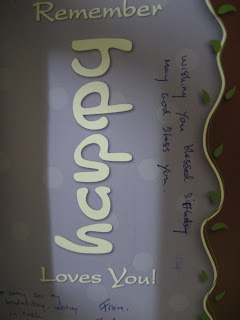 Remember
happy
wishing you blessed Birthday
may God bless you.
Loves You!
From.